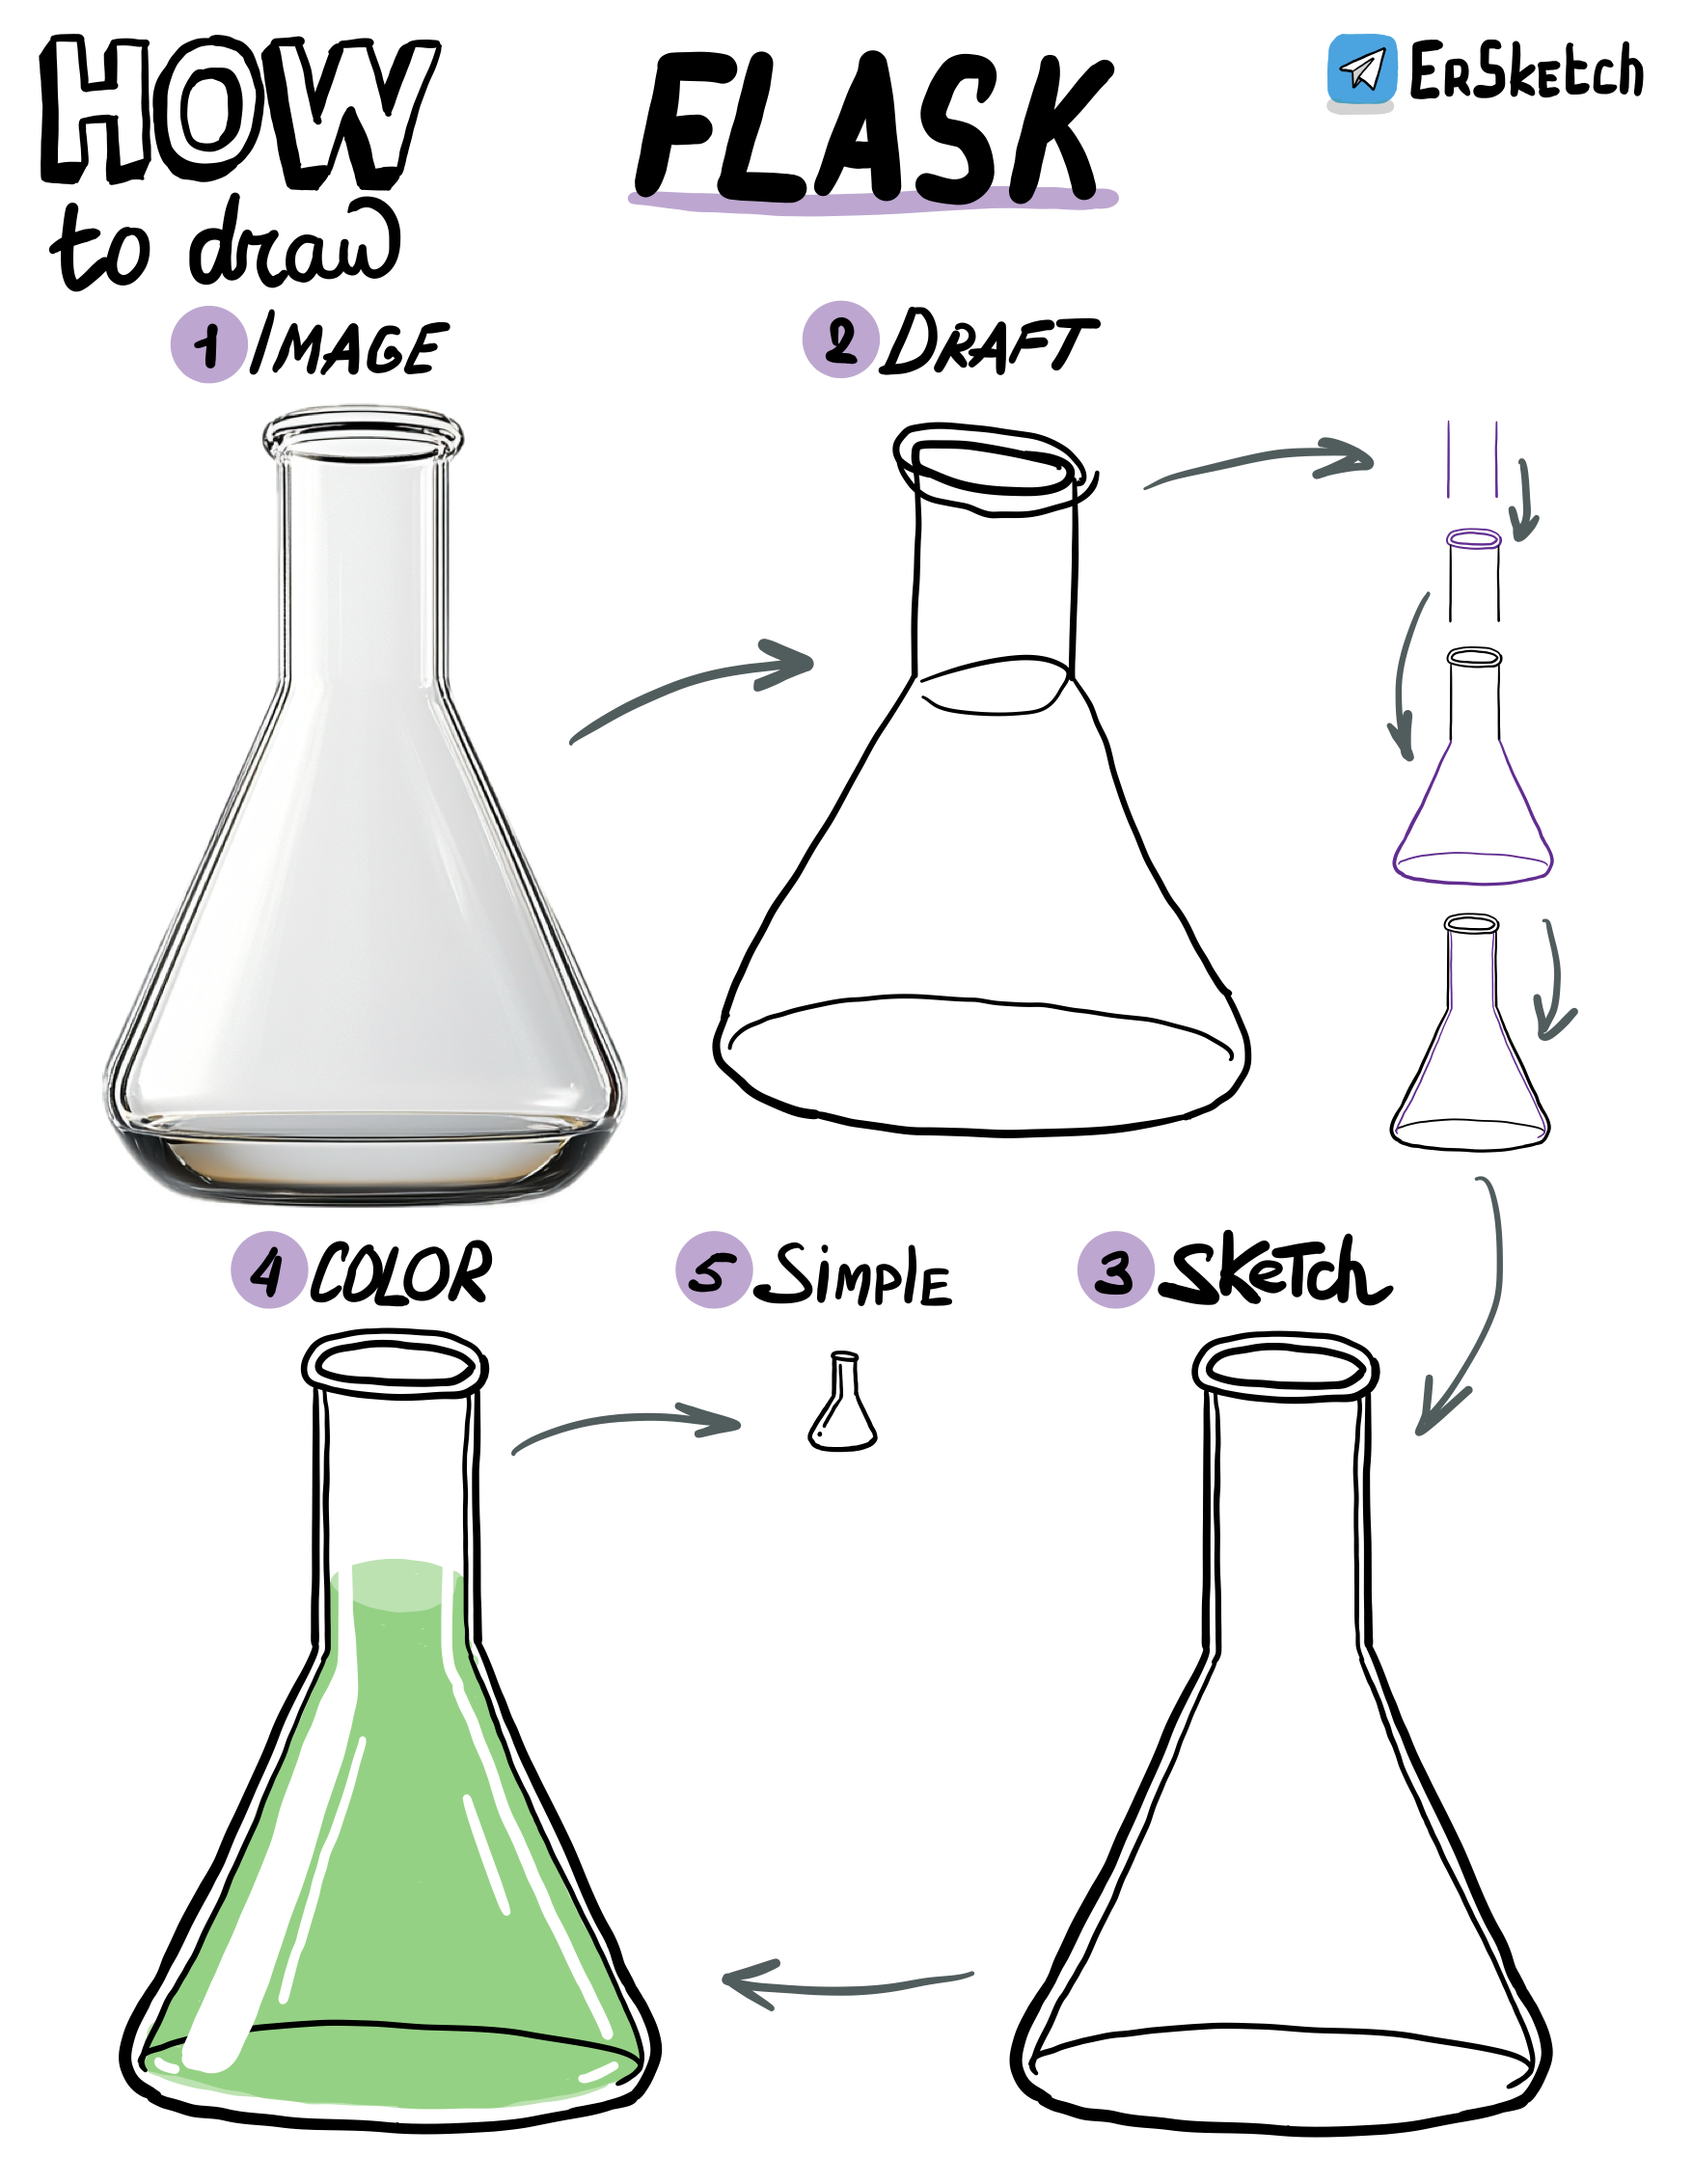 HOW
to draw
FLASK
ErSketch
1 IMAGE
2 DRAFT
4 COLOR
5 SimplE
3 SKeTch